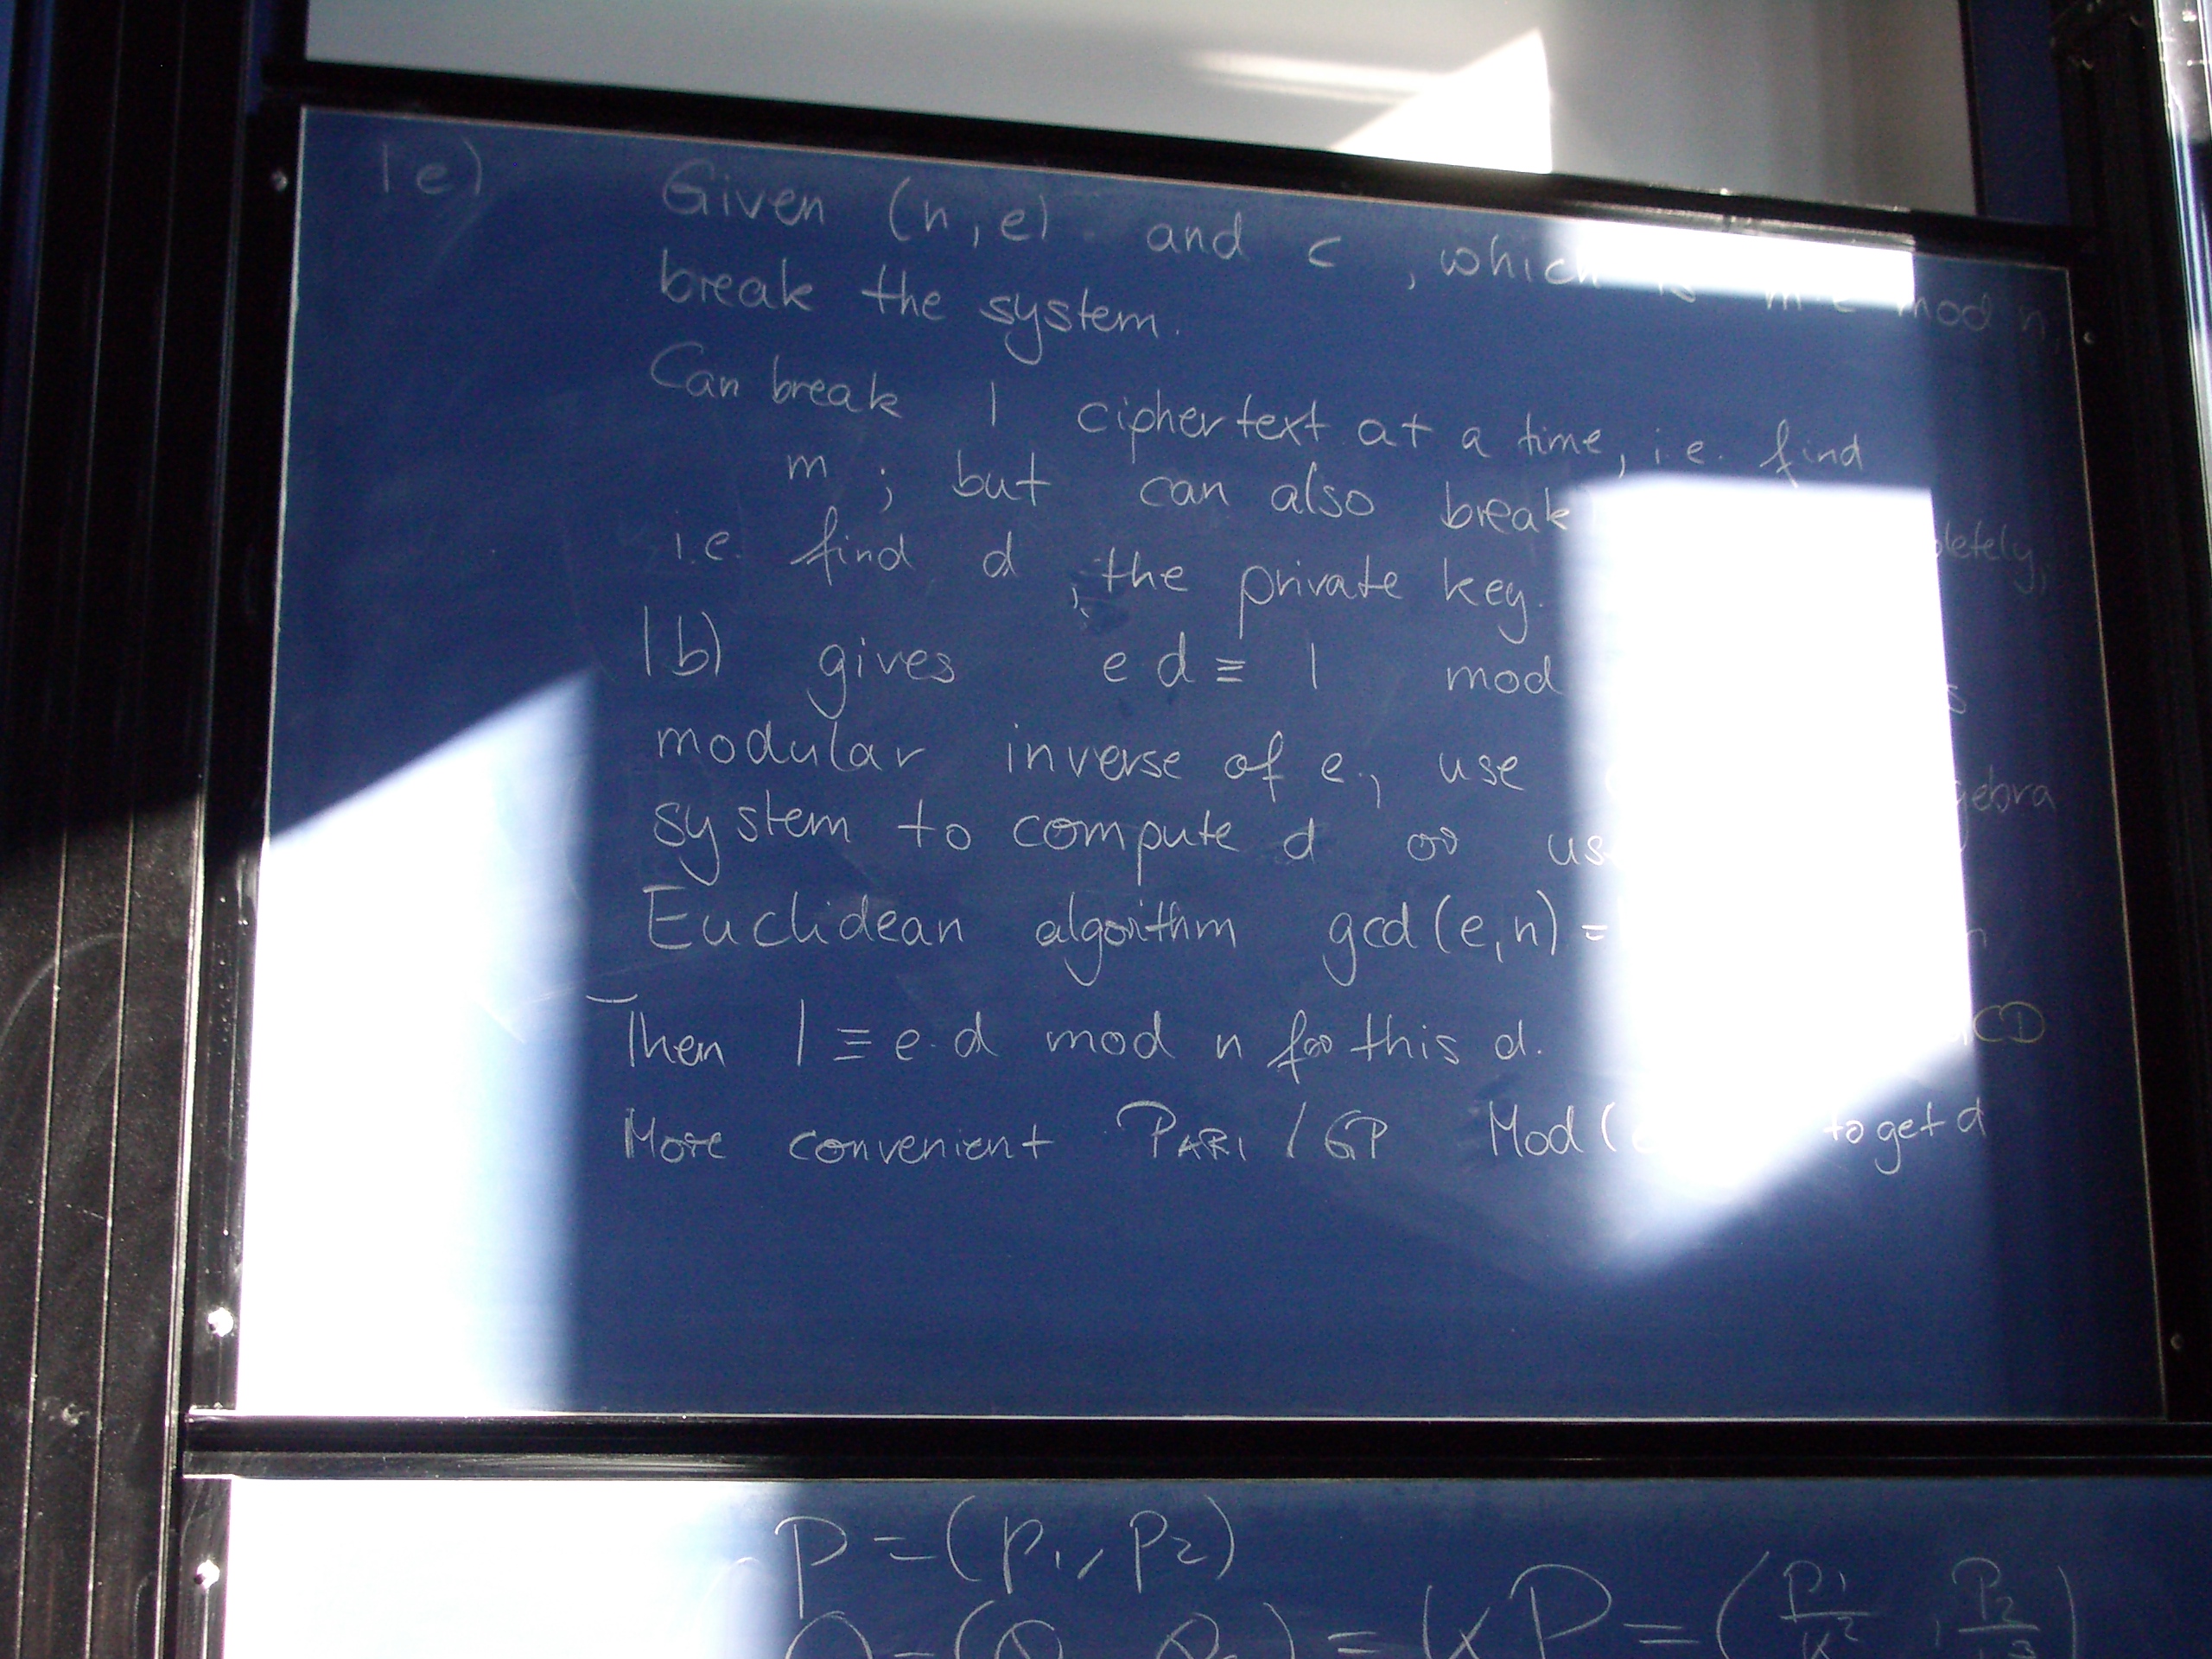 1e) Given (n, e) and c, which is m e mod n,
break the system.
Can break 1 ciphertext at a time, i.e. find
m ; but can also break
i.e. find d, the private key.
1b) gives e d ≡ 1 mod
modular inverse of e, use
system to compute d or
Euclidean algorithm gcd(e,n) =
Then 1 ≡ e·d mod n for this d.
More convenient PARI / GP Mod( to get d
P = (P1, P2)
= (x P = (P1/x², P2